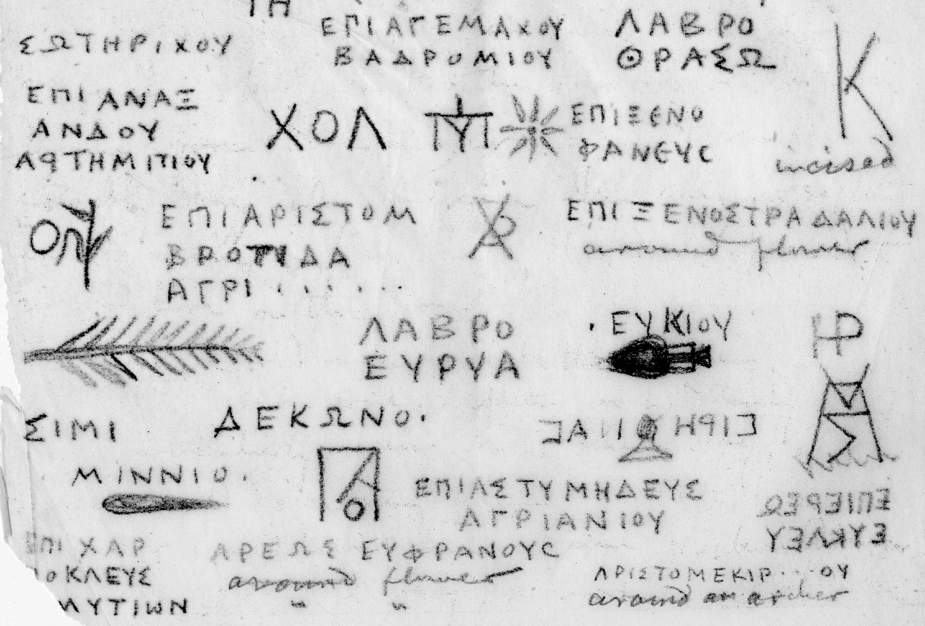 ΤΗ
ΣΩΤΗΡΙΧΟΥ
ΕΠΙΑΓΕΜΑΧΟΥ
ΒΑΔΡΟΜΙΟΥ
ΛΑΒΡΟ
ΘΡΑΣΩ
Κ
incised
ΕΠΙΑΝΑΞ
ΑΝΔΟΥ
ΧΟΛ
ΕΠΙΞΕΝΟ
ΦΑΝΕΥC
ΕΠΙΑΡΙΣΤΟΜ
ΑΓΡΙ........
ΕΠΙΞΕΝΟΣΤΡΑΔΑΛΙΟΥ
around flower
ΛΑΒΡΟ
ΕΥΡΥΑ
.ΕΥΚΙΟΥ
ΣΙΜΙ
ΔΕΚΩΝΟ.
ΜΙΝΝΙΟ.
ΕΠΙΑΣΤΥΜΗΔΕΥΣ
ΑΓΡΙΑΝΙΟΥ
ΕΥΚΛΕΥ
ΕΠΙΧΑΡ
ΟΚΛΕΥΣ
ΛΥΤΙΩΝ
ΑΡΕΩΣ ΕΥΦΡΑΝΟΥC
around flower
" "
ΑΡΙΣΤΟΜΕΚΙΡ...ΟΥ
around an archer